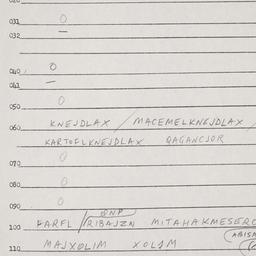 031 O
032 —
040 O
041 —
050 O
KNEJDLAX / MACEMELKNEJDLAX /
060 KARTOFLKNEJDLAX QAGANCJOR
070 O
080 O
090 O
100 FARFL / RIBAJZN MITAHAKMESERC
110 MAJXOLIM XOLJM